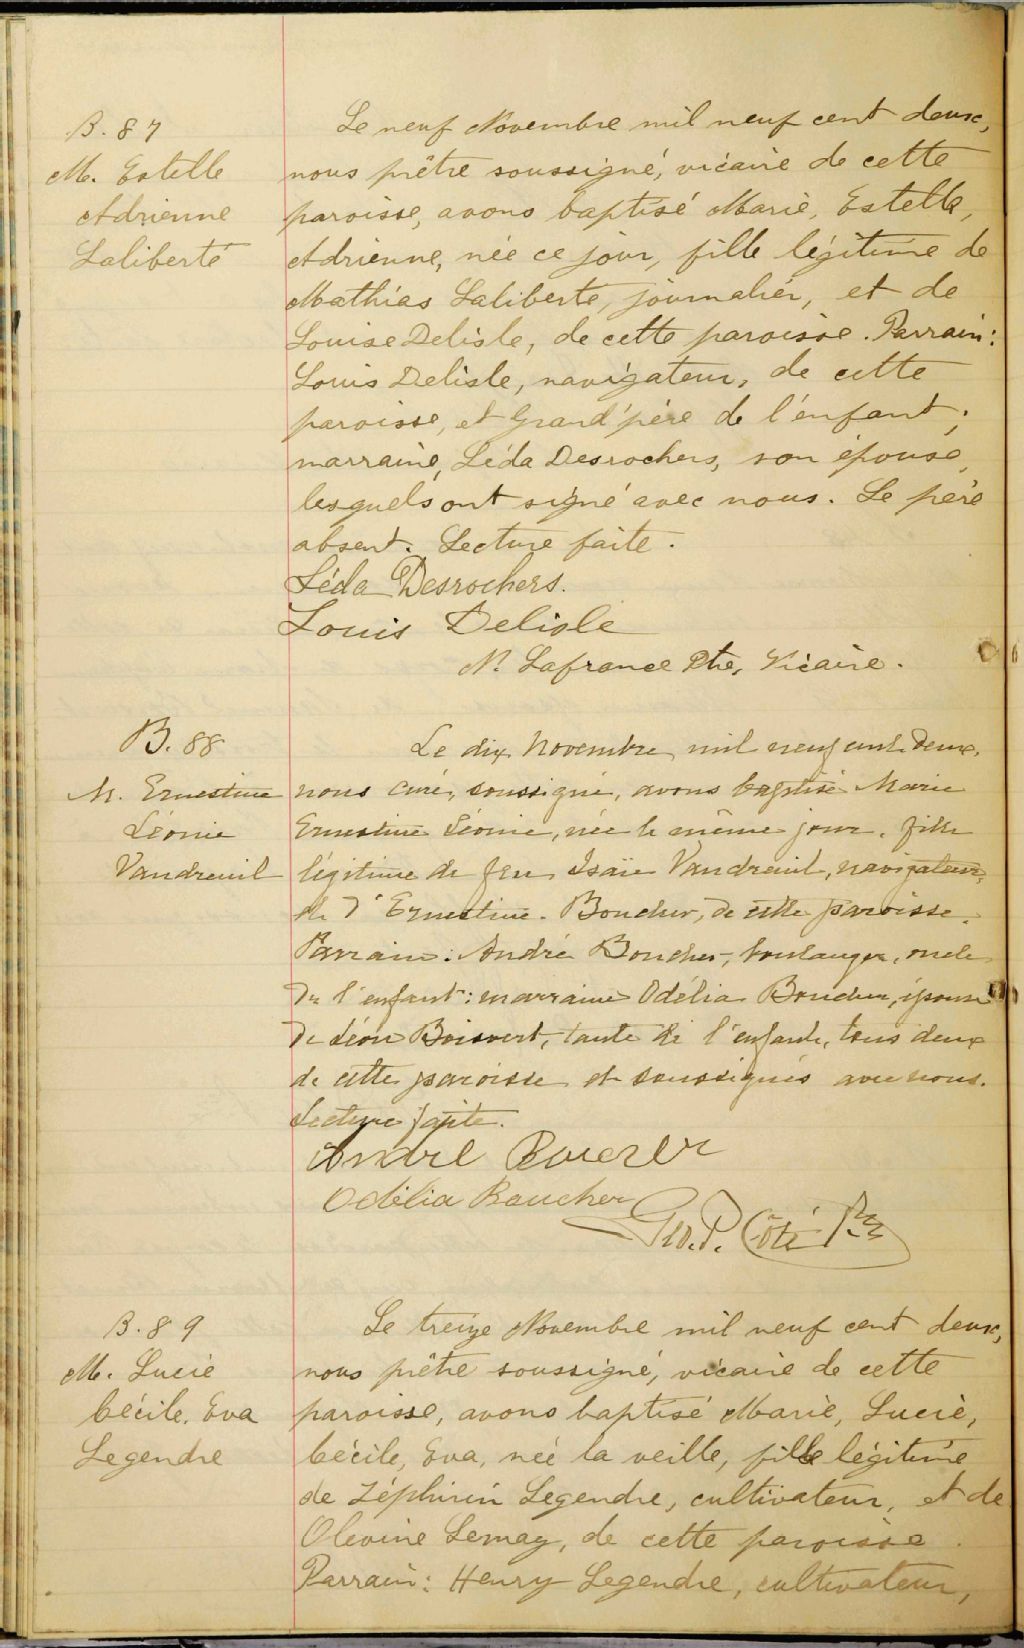 B. 87
M. Estelle
Adrienne
Laliberté
Le neuf Novembre mil neuf cent deux,
nous prêtre soussigné, vicaire de cette
paroisse, avons baptisé Marie, Estelle,
Adrienne, née ce jour, fille légitime de
Mathias Laliberté, journalier, et de
Louise Delisle, de cette paroisse. Parrain:
Louis Delisle, navigateur, de cette
paroisse, et Grand'père de l'enfant;
marraine, Léda Desrochers, son épouse,
lesquels ont signé avec nous. Le père
absent. Lecture faite.
Léda Desrochers.
Louis Delisle
N. Lafrance Ptre, Vicaire.
B. 88
M. Ernestine
Léonie
Vaudreuil
Le dix Novembre mil neuf cent deux,
nous curé, soussigné, avons baptisé Marie
Ernestine Léonie, née le même jour, fille
légitime de feu Isaïe Vaudreuil, navigateur,
et d'Ernestine Boucher, de cette paroisse.
Parrain: André Boucher, boulanger, oncle
de l'enfant: marraine Odélia Boucher, épouse
de Léon Boisvert, tante de l'enfant, tous deux
de cette paroisse et soussignés avec nous.
Lecture faite.
André
Odélia Boucher
Geo. P. Côté Ptre
B. 89
M. Lucie
Cécile, Eva
Legendre
Le treize Novembre mil neuf cent deux,
nous prêtre soussigné, vicaire de cette
paroisse, avons baptisé Marie, Lucie,
Cécile, Eva, née la veille, fille légitime
de Zéphirin Legendre, cultivateur, et de
Olevine Lemay, de cette paroisse.
Parrain: Henry Legendre, cultivateur,